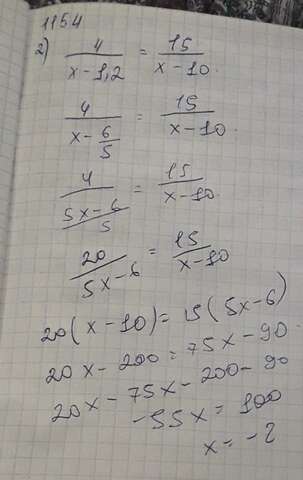 1154
2) 4/(x-1,2) = 15/(x-10).
4/(x-6/5) = 15/(x-10).
4/((5x-6)/5) = 15/(x-10)
20/(5x-6) = 15/(x-10)
20(x-10) = 15(5x-6)
20x-200 = 75x-90
20x-75x-200-90
-55x = 100
x = -2